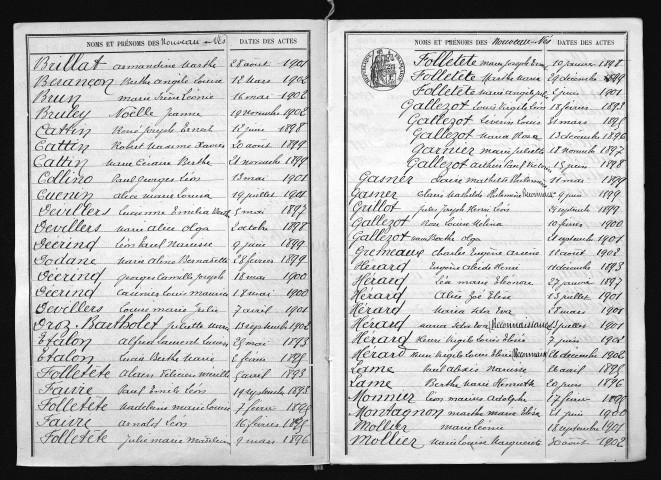 NOMS ET PRÉNOMS DES Nouveau-Nés DATES DES ACTES
Brillat armandine marthe 28 août 1901
Berançon Berthe angèle Louise 12 mars 1902
Brun marie Irène Léonie 16 mai 1902
Bruley Noëlle Jeanne 19 novembre 1902
Cattin René Joseph Ernest 12 juin 1898
Cattin Robert maxime Xavier 20 août 1899
Cattin marie Césarie Berthe 21 novembre 1899
Collino Paul Georges Léon 13 mai 1901
Cuenin alice marie Louisa 19 juillet 1901
Devillers Lucienne Emélia 5 mai 1897
Devillers marie alice olga 2 octobre 1898
Decrind Léon Paul Narcisse 9 juin 1899
Dodane marie aline Bernadette 28 février 1899
Decrind Georges Camille Joseph 18 mai 1900
Decrind Louis maurice 18 mai 1900
Devillers Louise marie Julie 7 avril 1901
Droz Bartholet Juliette marie 13 septembre 1902
Etalon alfred Laurent Lucien 25 mai 1893
Etalon Louis Berthe marie 2 février 1895
Folletête Félicien 5 avril 1893
Faivre Paul Emile Léon 19 septembre 1893
Folletête madeleine marie Louise 7 février 1895
Faivre arnold Léon 16 février 1895
Folletête Julie marie 9 mars 1896
NOMS ET PRÉNOMS DES Nouveau-Nés DATES DES ACTES
Folletête marie Joseph 10 janvier 1898
Folletête Marthe marie 29 décembre 1899
Folletête marie angèle 2 juin 1901
Gallezot Louis Virgile Léon 18 février 1893
Gallezot Séverin Louis mars 1895
Gallezot maria Rosa 13 décembre 1896
Garnier marie Juliette 18 novembre 1897
Gallezot arthur Paul 15 juin 1898
Gasner Marie mathilde 1899
Gasner mathilde Reconnaiss 9 juin 1899
Grillot Jules Joseph Henri Léon septembre 1899
Gallezot Rose Louise Mélina 10 février 1900
Gallezot marthe olga 21 septembre 1901
Gremeaux Charles Eugène arsène 11 août 1902
Hérard Eugène alcide Henri 11 décembre 1893
Hérard Léa marie Eléonore 27 janvier 1897
Hérard Alice Zoé Elise 13 juillet 1901
Hérard maria Eva 28 mars 1901
Hérard maria Eva Reconnaissance juillet 1901
Hérard Henri Virgile Louis 7 juin 1901
Hérard Henri Virgile Louis 26 décembre 1902
Lame Paul alexis Narcisse 26 avril 1895
Lame Berthe marie 20 juin 1896
Monnier Léon marius adolphe 17 février 1895
Montagnon marthe marie Elisa 21 juin 1900
Mollier marie Léonie 18 septembre 1901
Mollier marie Louise marguerite 30 août 1902